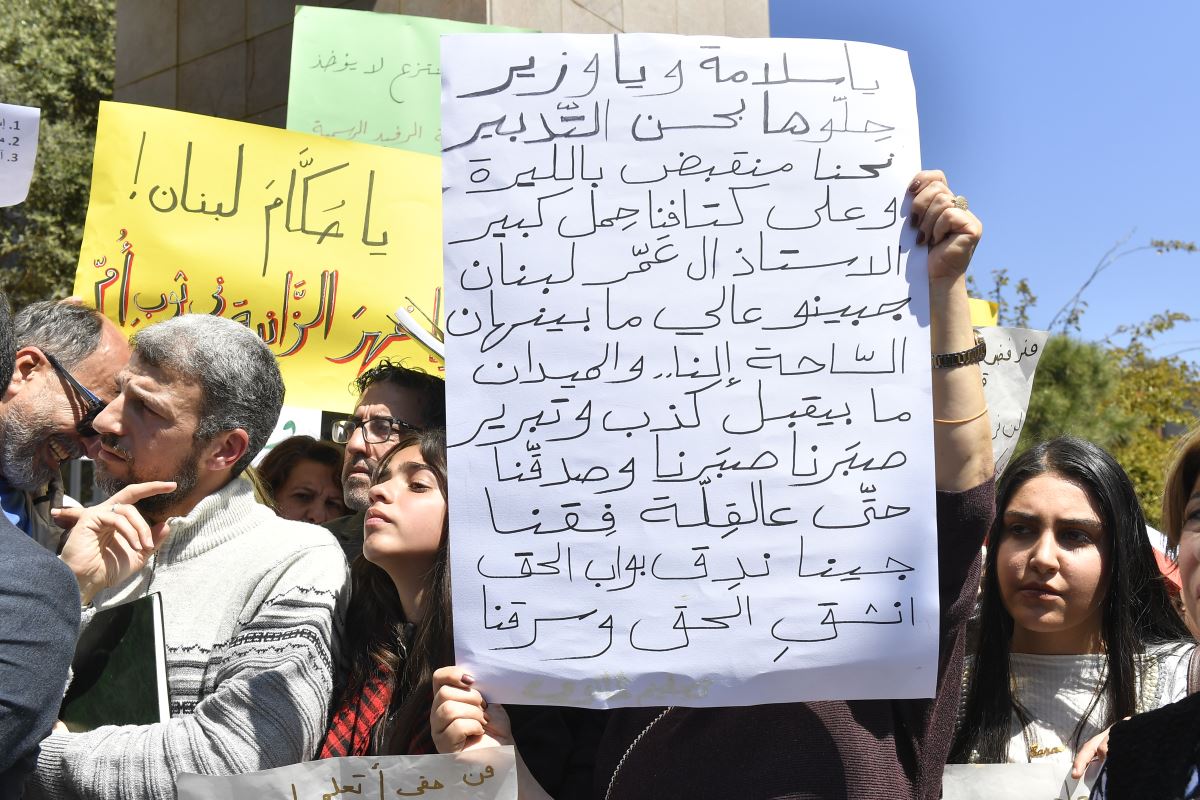 نتزع لا يؤخذ
الرفيد الرسمية
يا حكَّامَ لبنان!
الزَّانية في ثوبِ أُمّ
يا سلامة ويا وزير
حِلّوها بحسن التّدبير
نحنا منقبض بالليرة
وعلى كتافنا حِمل كبير
الاستاذ ال عَمّر لبنان
جبينو عالي ما بينهان
السّاحة إلنا.. والميدان
ما بيقبل كذب وتبرير
صبَرنا صبَرنا وصدقّنا
حتّى عالقِلّة فِقنا
جينا ندِق بواب الحق
انشقِ الحق وسرقنا
من حقي أتعلم
1.
2.
3.